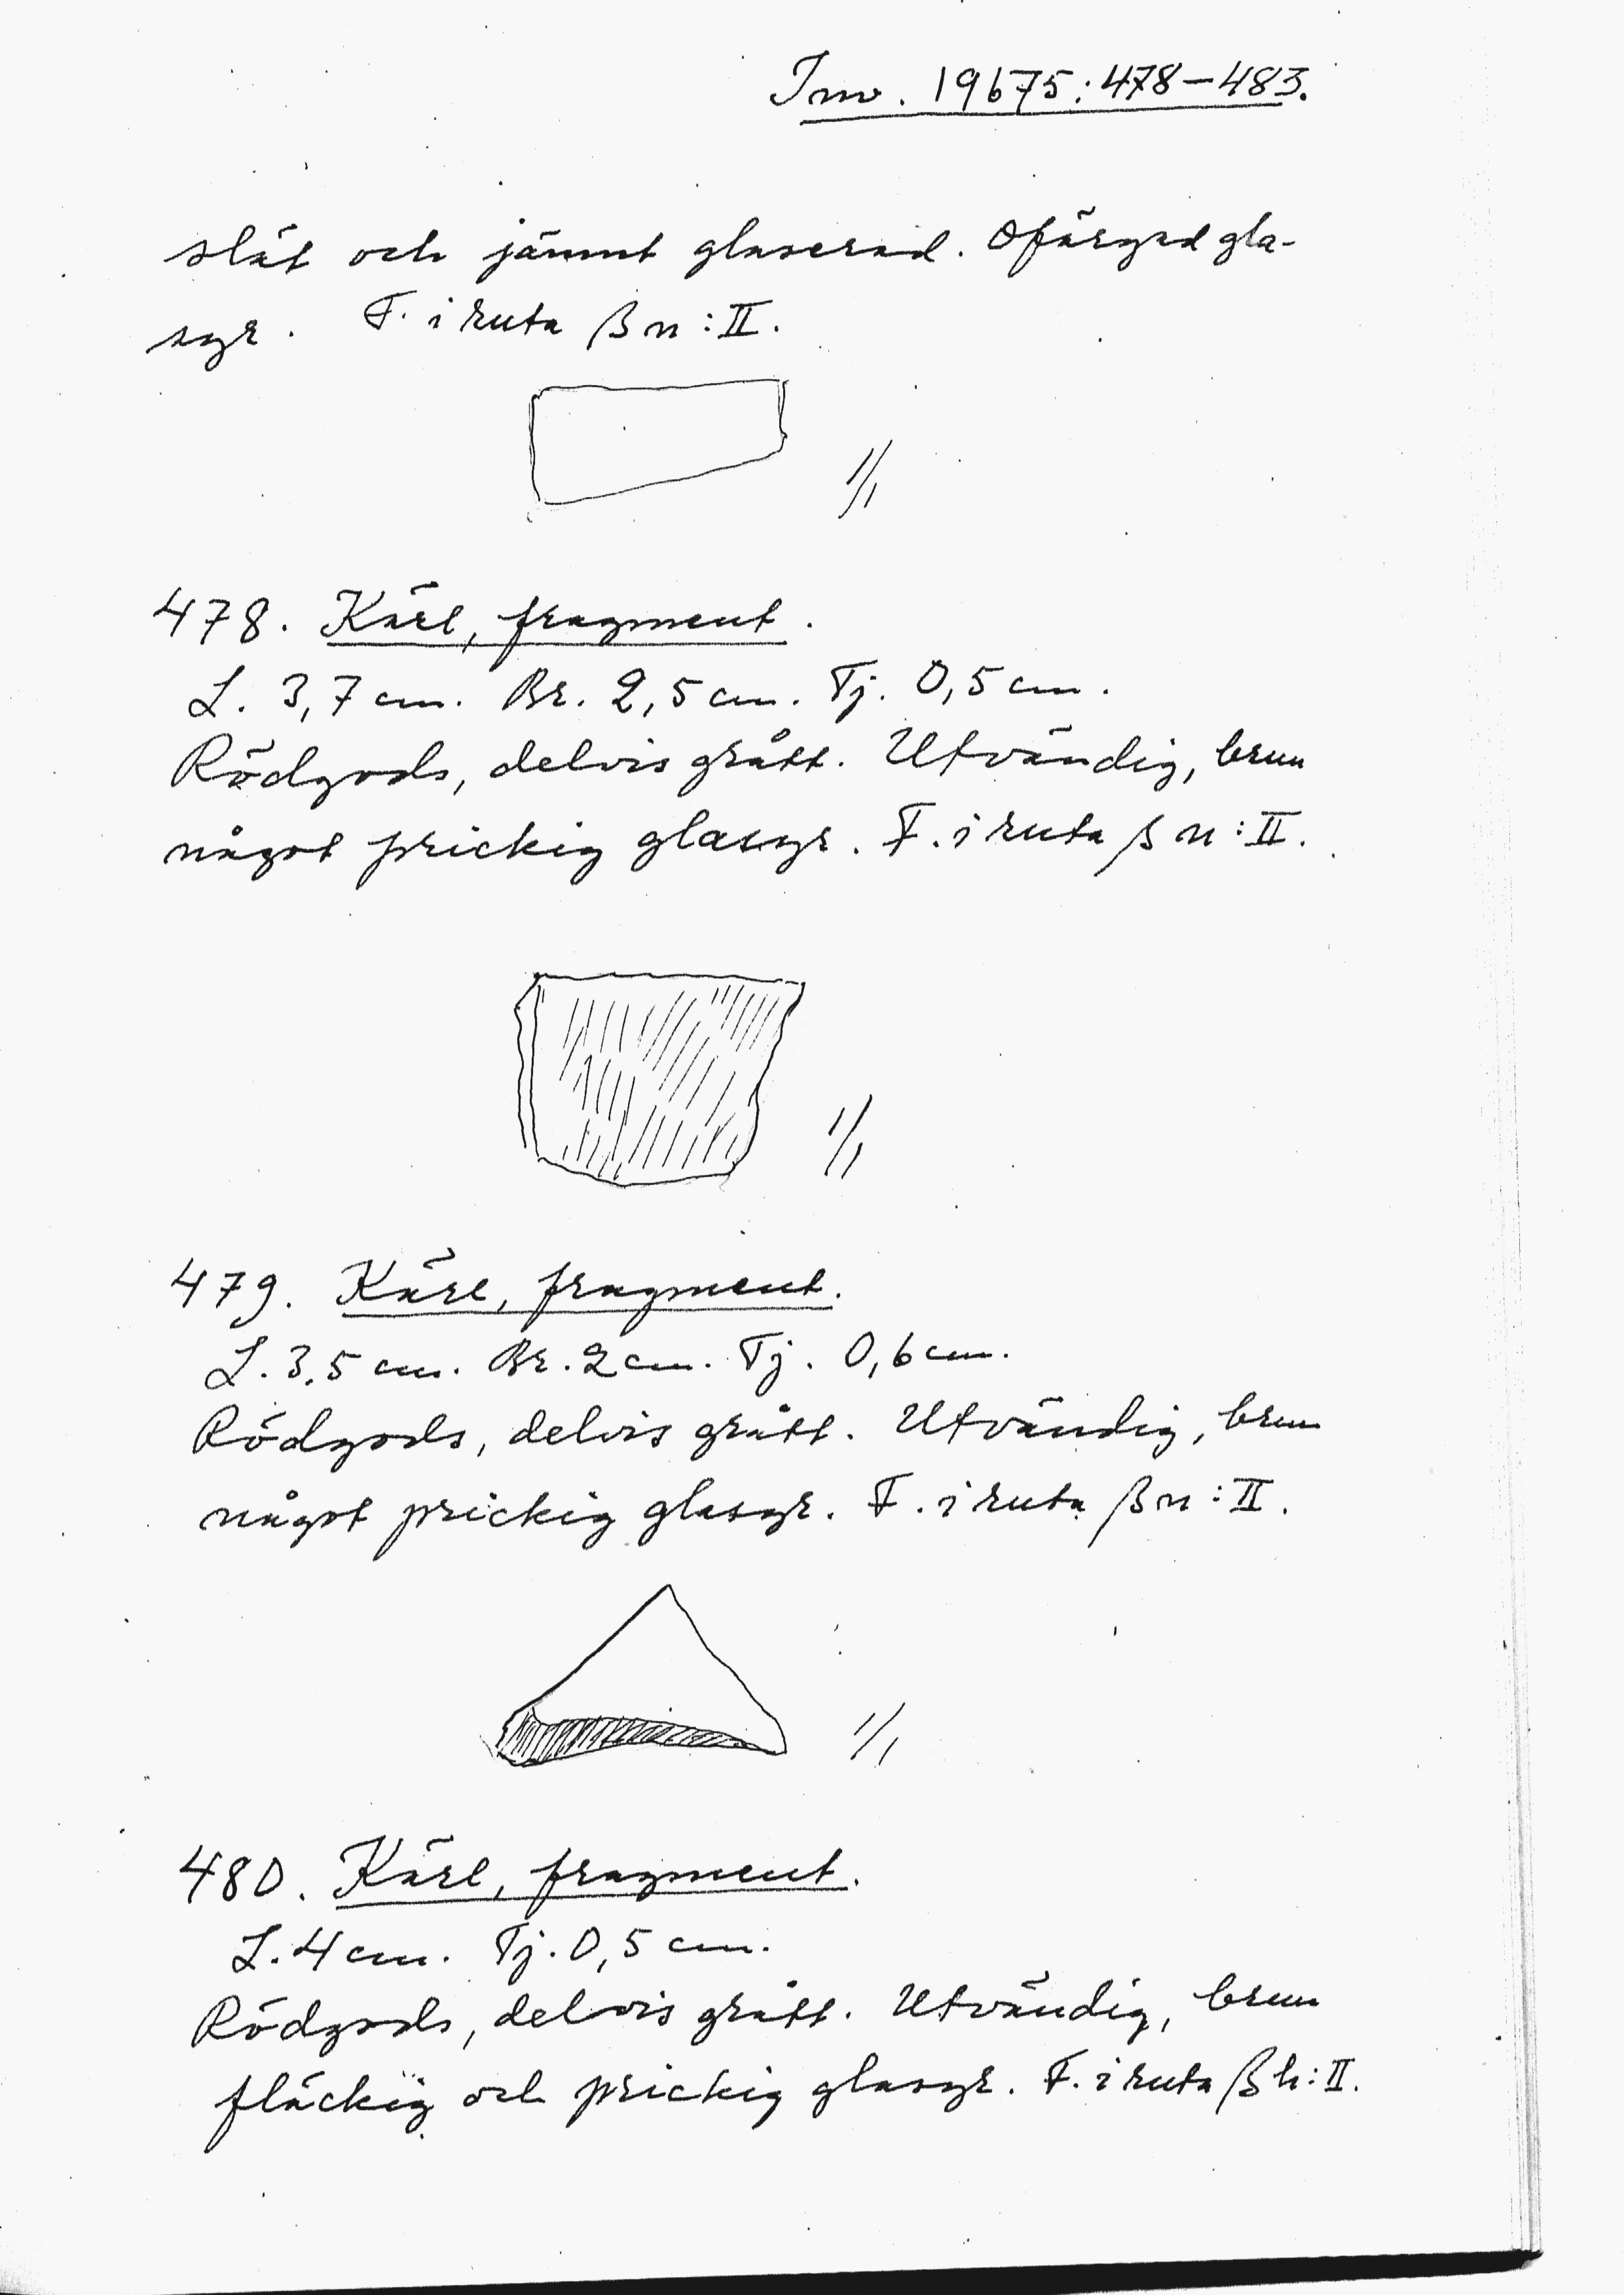 Inv. 19675:478–483.
slät och jämnt glaserad. Ofärgad gla-
syr. F. i ruta β n:II.
1/1
478. Kärl, fragment.
L. 3,7 cm. Br. 2,5 cm. Tj. 0,5 cm.
Rödgods, delvis grått. Utvändig, brun
något prickig glasyr. F. i ruta β n:II.
1/1
479. Kärl, fragment.
L. 3,5 cm. Br. 2 cm. Tj. 0,6 cm.
Rödgods, delvis grått. Utvändig, brun
något prickig glasyr. F. i ruta β n:II.
1/1
480. Kärl, fragment.
L. 4 cm. Tj. 0,5 cm.
Rödgods, delvis grått. Utvändig, brun
fläckig och prickig glasyr. F. i ruta β h:II.